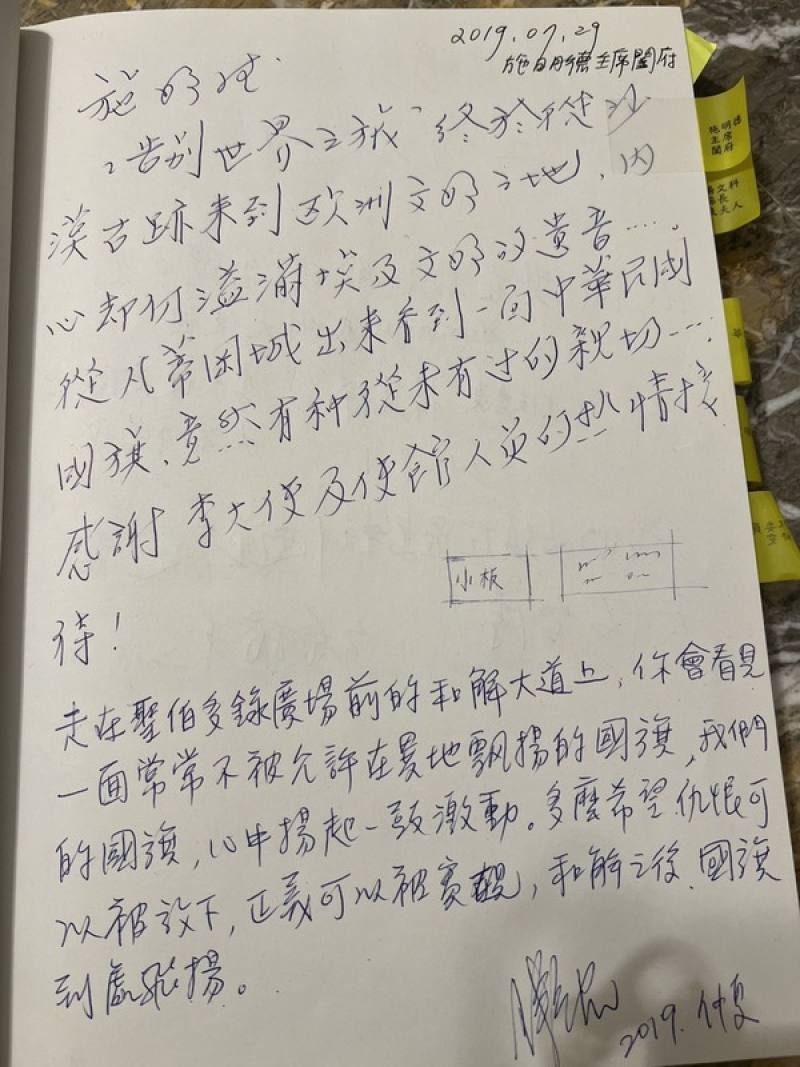 2019.07.29
施明德主席閤府
施明德
"告別世界之旅"終於從沙
漠古跡來到欧洲文明之地,內
心却仍溢滿埃及文明的遺音....。
從凡蒂岡城出來看到一面中華民國
國旗,竟然有种從未有过的親切....
感謝李大使及使館人员的热情接
待!
小板
走在聖伯多錄廣場前的和解大道上,你會看見
一面常常不被允許在異地飄揚的國旗,我們
的國旗,心中揚起一股激動。多麼希望仇恨可
以被放下,正義可以被實現,和解之後,國旗
到處飛揚。
2019.仲夏
施明德
主席
閤府
文科
長
夫人